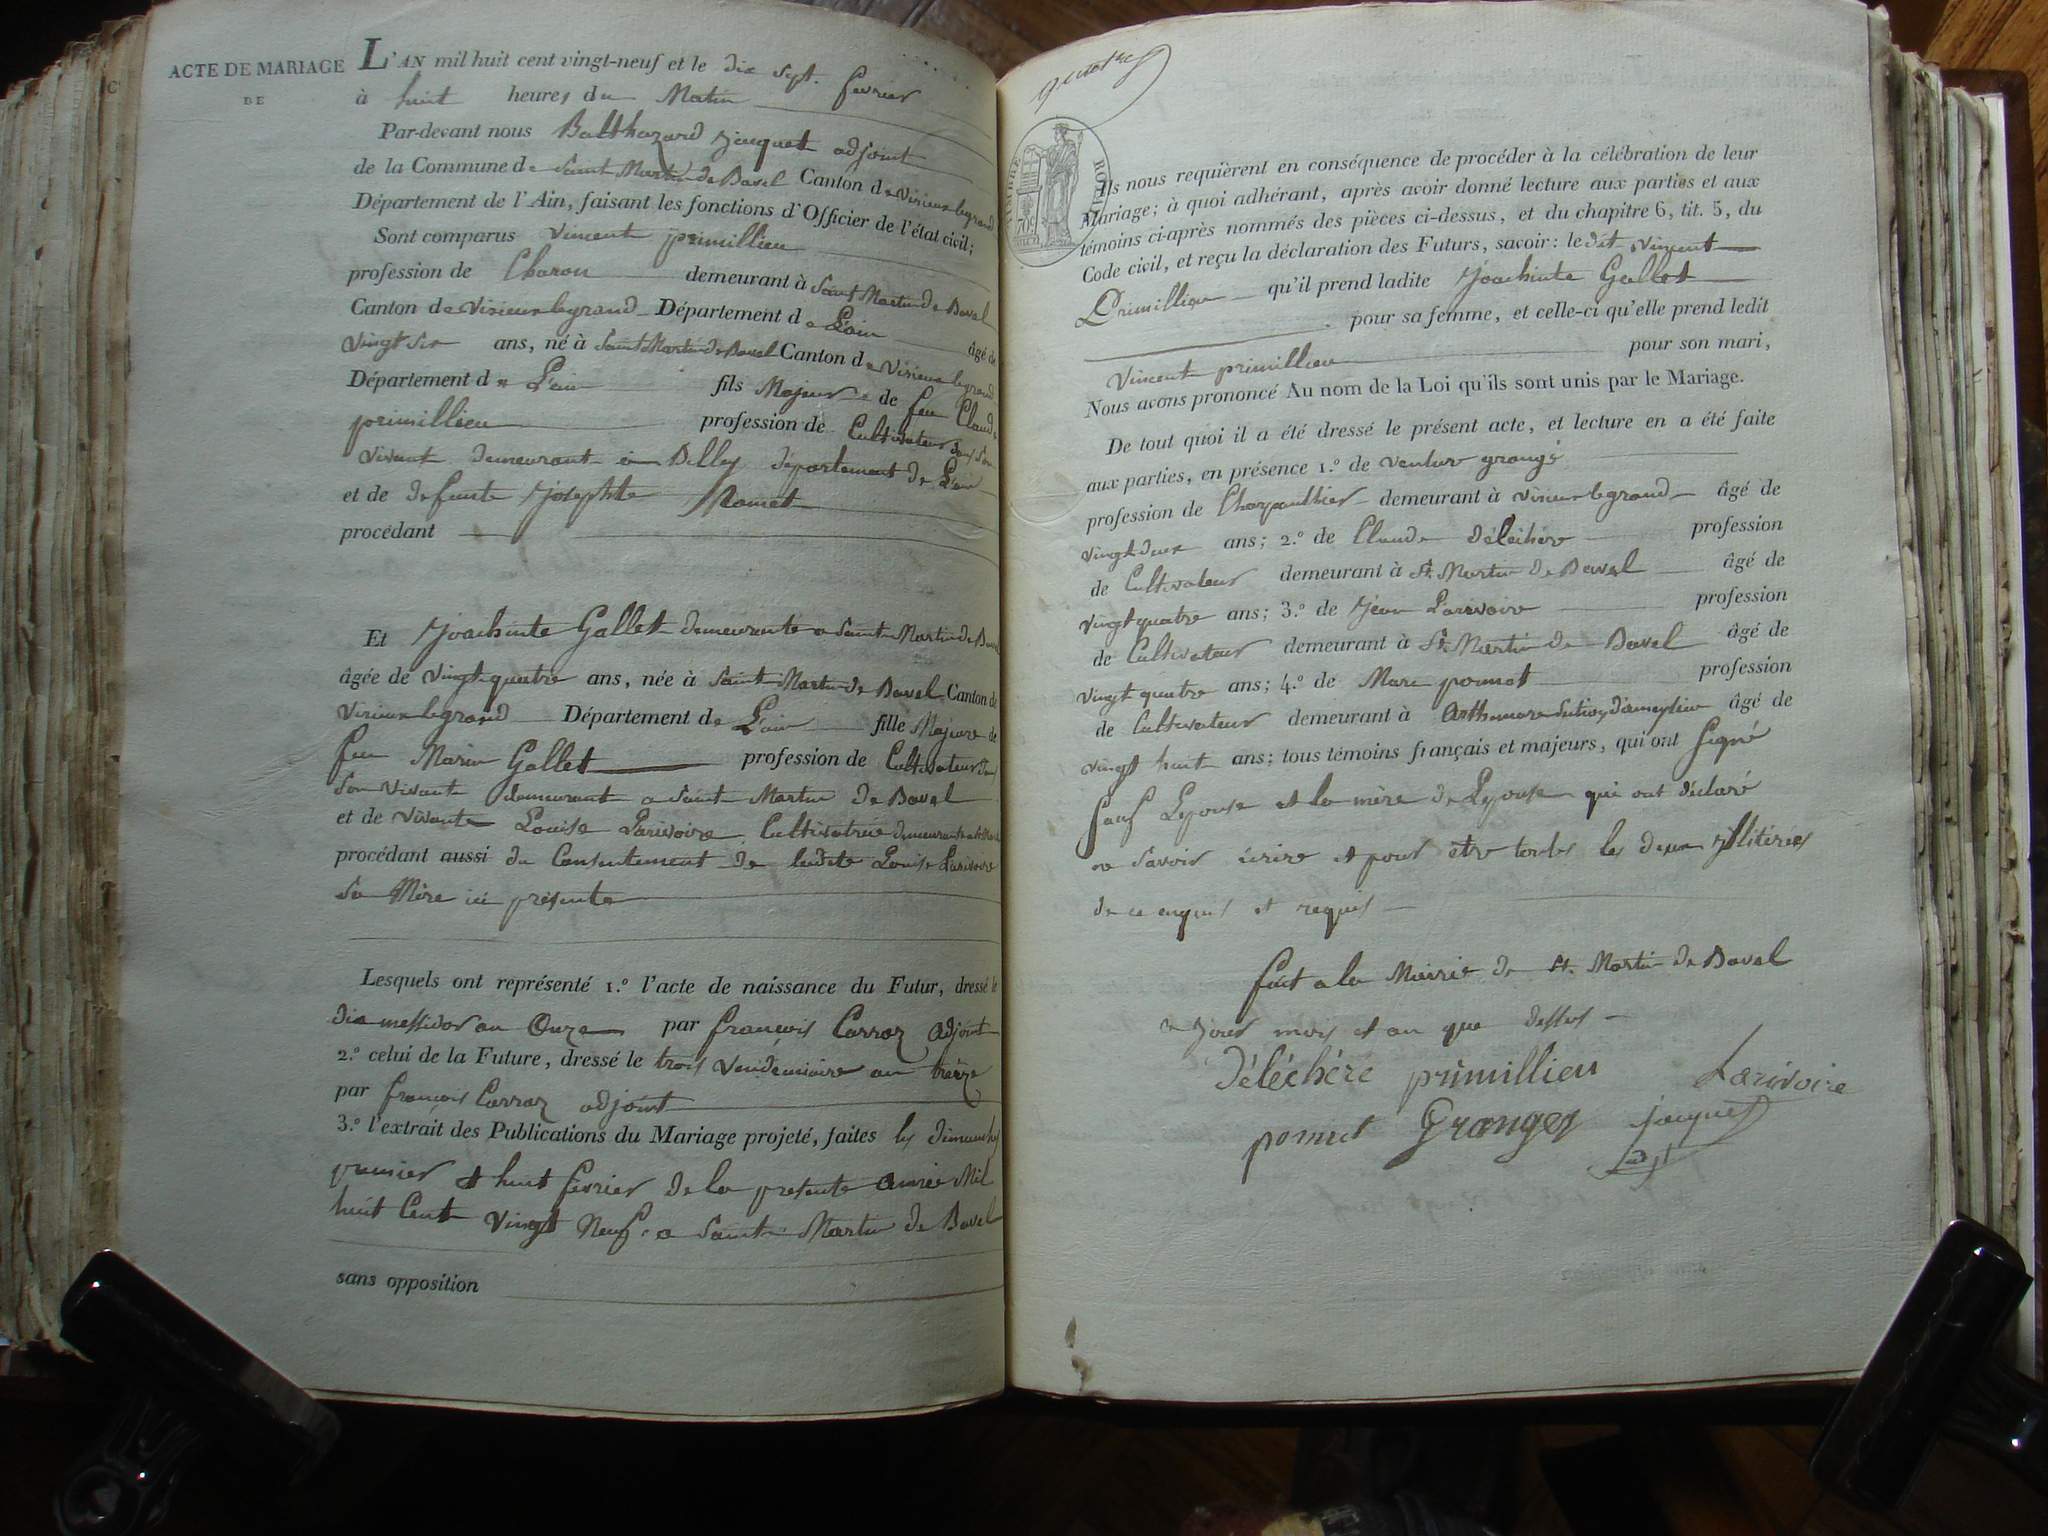 ACTE DE MARIAGE
DE
L'AN mil huit cent vingt-neuf et le dix sept fevrier
à huit heures du Matin
Par-devant nous Balthazard Jacquet adjoint
de la Commune de Saint Martin de Bavel Canton de Virieux legrand
Département de l'Ain, faisant les fonctions d'Officier de l'état civil;
Sont comparus Vincent primillieu
profession de Charon demeurant à Saint Martin de Bavel
Canton de Virieux legrand Département de L'ain âgé de
vingt six ans, né à Saint Martin de Bavel Canton de Virieux legrand
Département de L'ain fils Majeur de feu Claude
primillieu profession de Cultivateur dans son
vivant demeurant a Billy département de L'ain
et de defunte Josephte
procédant
Et Joachinte Gallet demeurante a Saint Martin de Bavel
âgée de vingt quatre ans, née à Saint Martin de Bavel Canton de
Virieux legrand Département de L'ain fille Majeure de
feu Marin Gallet profession de Cultivateur dans
son vivant demeurant a Saint Martin de Bavel
et de vivante Louise Larivoire Cultivatrice demeurante
procédant aussi du Consentement de ladite Louise Larivoire
sa Mère ici présente
Lesquels ont représenté 1.º l'acte de naissance du Futur, dressé le
dix messidor an Onze par françois Carraz adjoint
2.º celui de la Future, dressé le trois vendemiaire an treize
par françois Carraz adjoint
3.º l'extrait des Publications du Mariage projeté, faites les dimanches
premier et huit fevrier de la presente année Mil
huit Cent vingt Neuf a Saint Martin de Bavel
sans opposition
TIMBRE ROYAL
70c
Ils nous requièrent en conséquence de procéder à la célébration de leur
Mariage; à quoi adhérant, après avoir donné lecture aux parties et aux
témoins ci-après nommés des pièces ci-dessus, et du chapitre 6, tit. 5, du
Code civil, et reçu la déclaration des Futurs, savoir: le dit vincent
Primillieu qu'il prend ladite Joachinte Gallet
pour sa femme, et celle-ci qu'elle prend ledit
Vincent primillieu pour son mari,
Nous avons prononcé Au nom de la Loi qu'ils sont unis par le Mariage.
De tout quoi il a été dressé le présent acte, et lecture en a été faite
aux parties, en présence 1.º de venture grangé
profession de Charpanthier demeurant à virieux legrand âgé de
vingt deux ans; 2.º de Claude déléchére profession
de Cultivateur demeurant à St. Martin de Bavel âgé de
vingt quatre ans; 3.º de Jean Larivoire profession
de Cultivateur demeurant à St. Martin de Bavel âgé de
vingt quatre ans; 4.º de Marc pomet profession
de Cultivateur demeurant à âgé de
vingt huit ans; tous témoins français et majeurs, qui ont signé
sauf Lepouse et la mère de Lepouse qui ont déclaré
ne savoir écrire et pour être toutes les deux illitérées
de ce enquis et requis
fait a la Mairie de St. Martin de Bavel
jour mois et an que dessus
déléchére primillieu Larivoire
pomet Granger jacquet
adjt